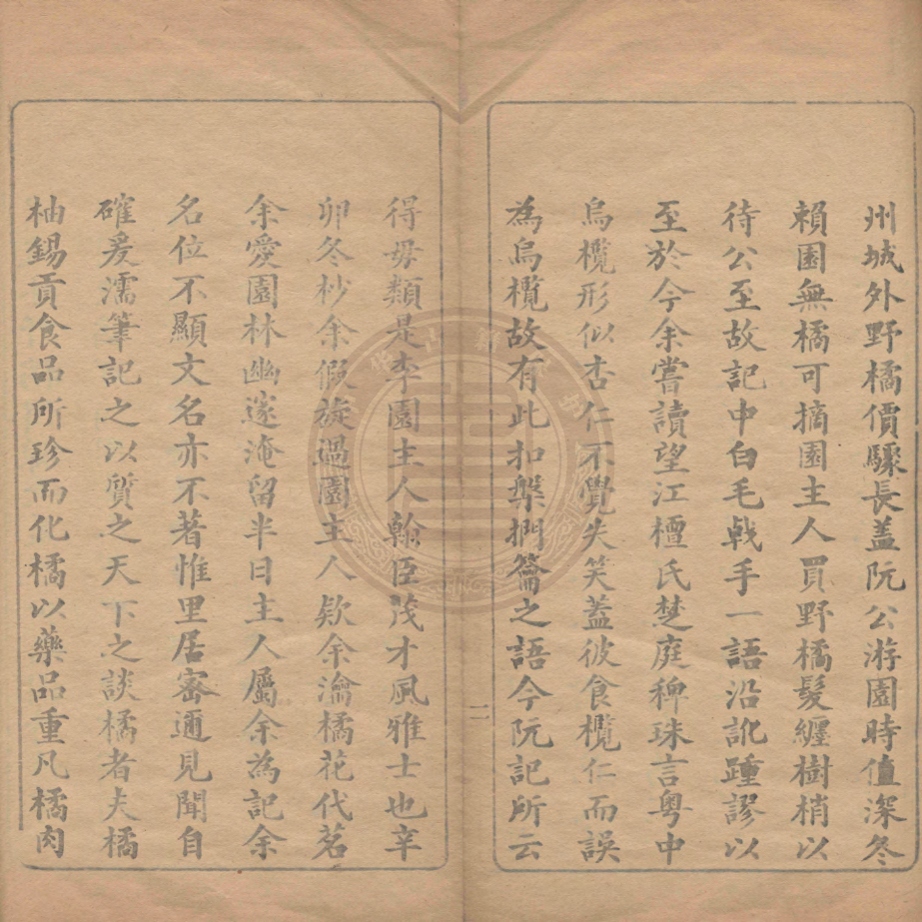 州城外野橘價驟長盖阮公游園時值深冬
賴園無橘可摘園主人買野橘髮纏樹梢以
待公至故記中白毛戟手一語沿訛踵謬以
至於今余嘗讀望江檀氏楚庭稗珠言粵中
烏欖形似杏仁不覺失笑蓋彼食欖仁而誤
為烏欖故有此扣槃捫籥之語今阮記所云
二
得毋類是李園主人翰臣茂才風雅士也辛
卯冬杪余假旋過園主人欵余瀹橘花代茗
余愛園林幽邃淹留半日主人屬余為記余
名位不顯文名亦不著惟里居密邇見聞自
確爰濡筆記之以質之天下之談橘者夫橘
柚錫貢食品所珍而化橘以藥品重凡橘肉